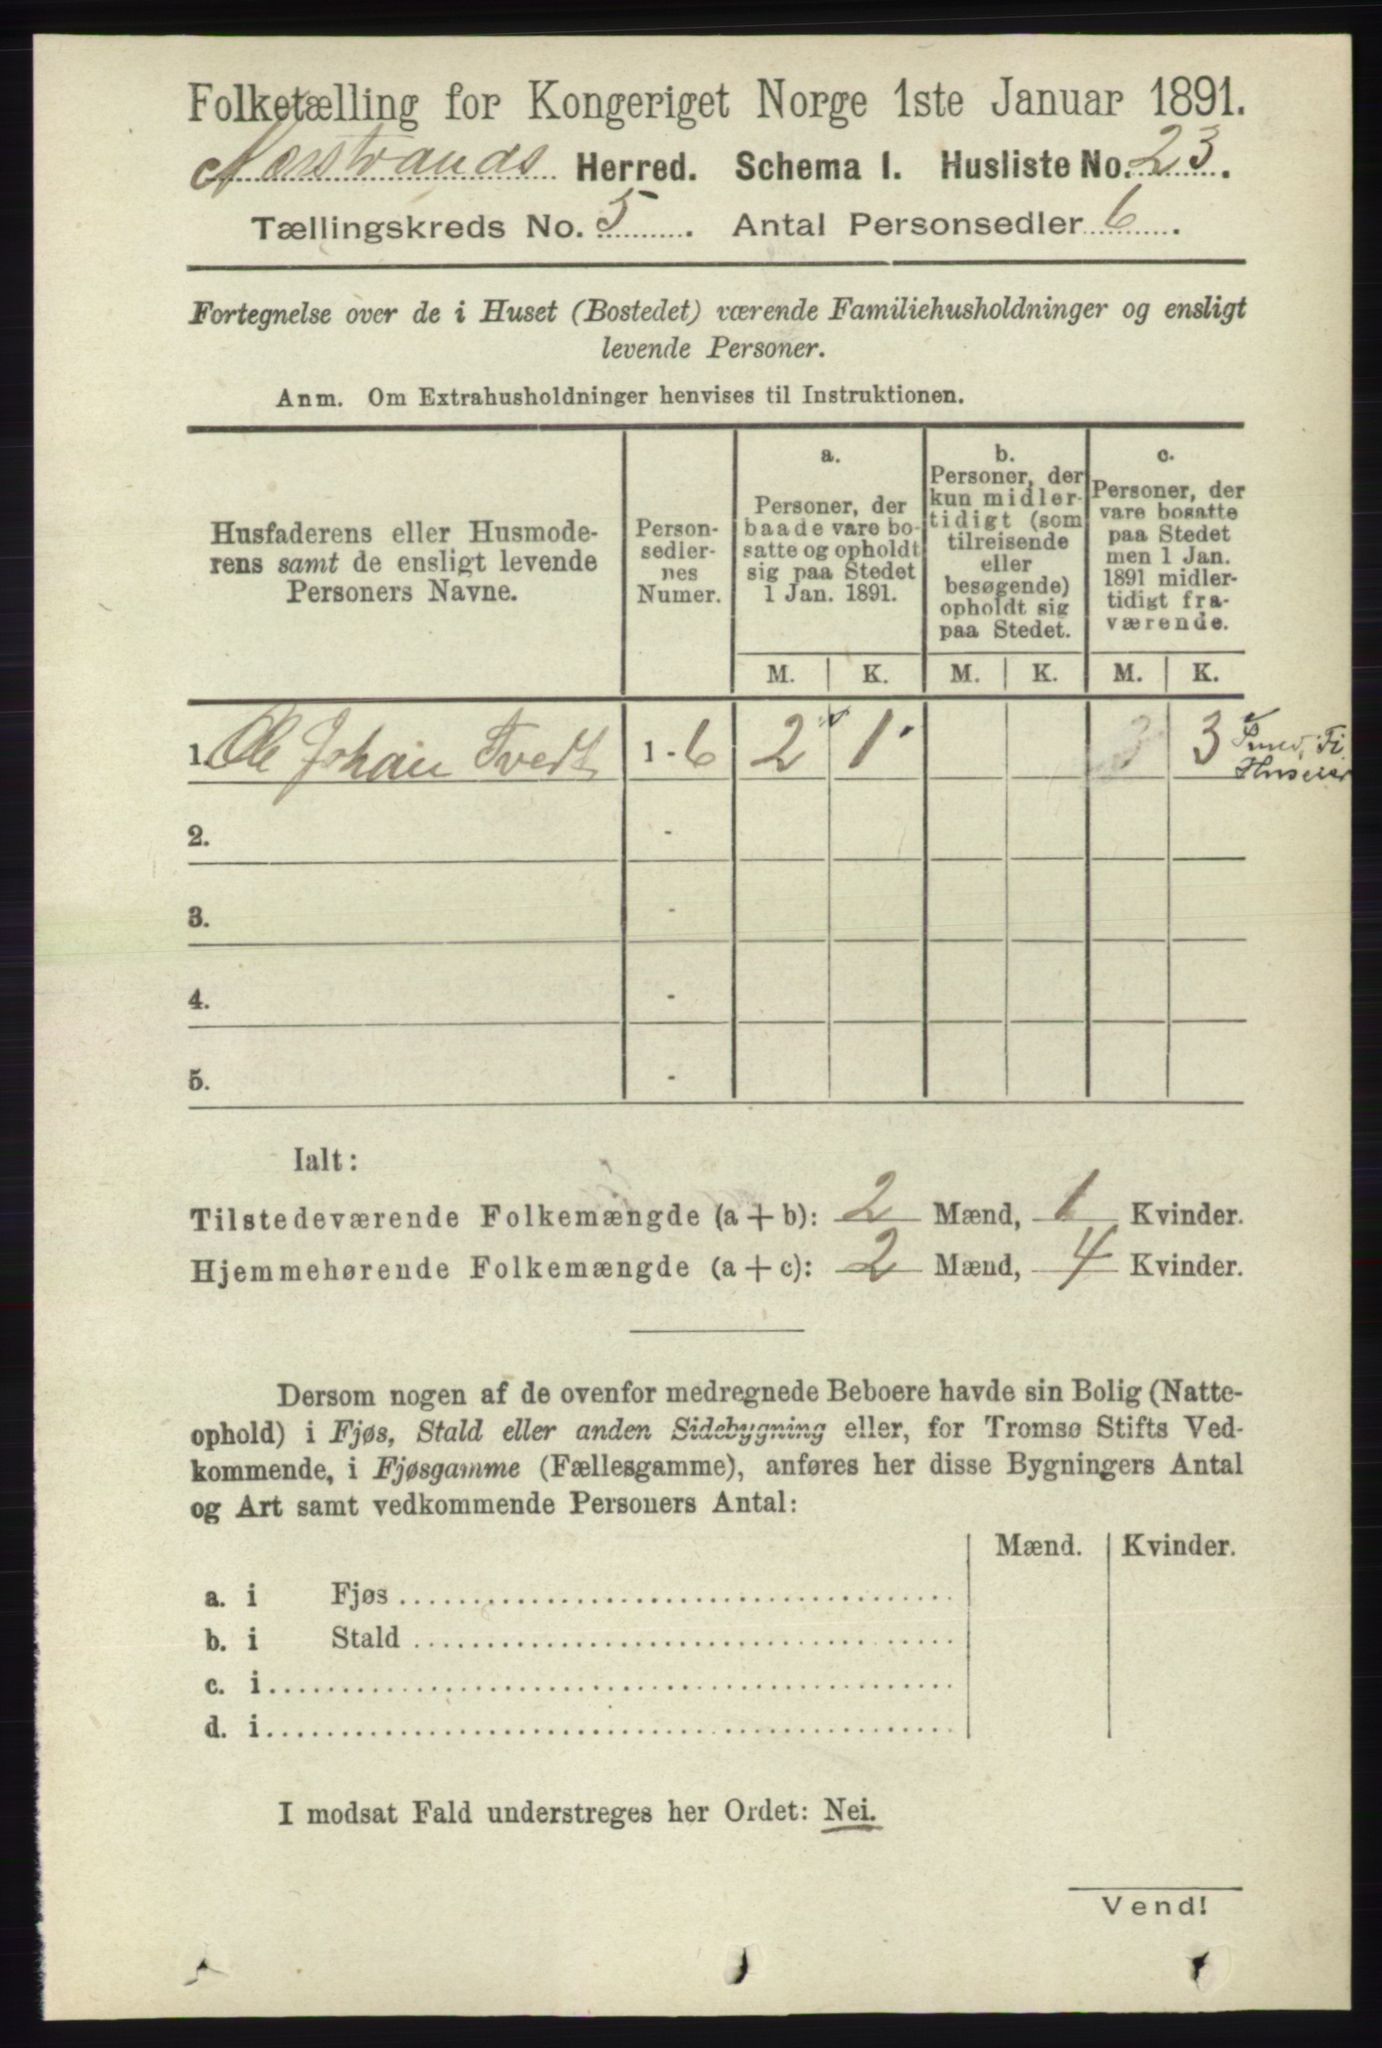 Folketælling for Kongeriget Norge 1ste Januar 1891.
Nerstrands Herred. Schema I. Husliste No. 23.
Tællingskreds No. 5. Antal Personsedler 6.
Fortegnelse over de i Huset (Bostedet) værende Familiehusholdninger og ensligt
levende Personer.
Anm. Om Extrahusholdninger henvises til Instruktionen.
Husfaderens eller Husmode-
rens samt de ensligt levende
Personers Navne.
Person-
sedler-
nes
Numer.
a.
Personer, der
baade vare bo-
satte og opholdt
sig paa Stedet
1 Jan. 1891.
b.
Personer, der
kun midler-
tidigt (som
tilreisende
eller
besøgende)
opholdt sig
paa Stedet.
c.
Personer, der
vare bosatte
paa Stedet
men 1 Jan.
1891 midler-
tidigt fra-
værende.
M. K. M. K. M. K.
1. Ole Johan Tvedt 1-6 2 1 3 3
Huseier
2. -
3. -
4. -
5. -
Ialt:
Tilstedeværende Folkemængde (a+b): 2 Mænd, 1 Kvinder.
Hjemmehørende Folkemængde (a+c): 2 Mænd, 4 Kvinder.
Dersom nogen af de ovenfor medregnede Beboere havde sin Bolig (Natte-
ophold) i Fjøs, Stald eller anden Sidebygning eller, for Tromsø Stifts Ved-
kommende, i Fjøsgamme (Fællesgamme), anføres her disse Bygningers Antal
og Art samt vedkommende Personers Antal:
Mænd. Kvinder.
a. i Fjøs
b. i Stald
c. i
d. i
I modsat Fald understreges her Ordet: Nei.
Vend!